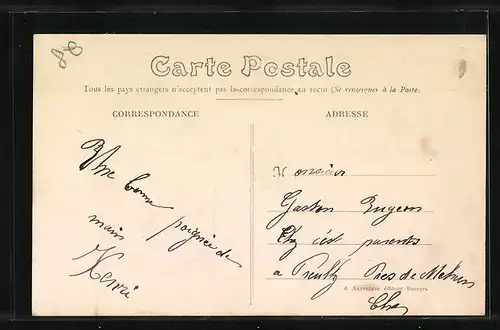 Carte Postale
Tous les pays étrangers n'acceptent pas la correspondance au recto (Se renseigner à la Poste)
CORRESPONDANCE
ADRESSE
Une bonne
poignée de
main
Henri
Monsieur
Gaston
Chez ces parents
à Preuilly Près de Mehun
Cher
A éditeur Bourges